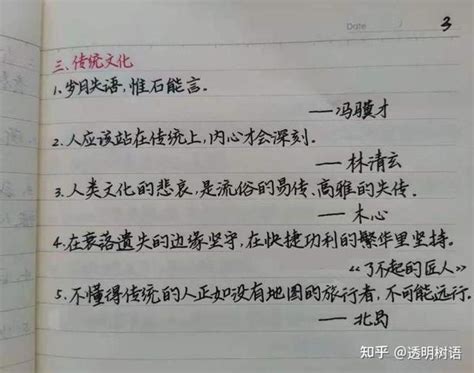 Date
3
三、传统文化
1.岁月失语,惟石能言.
——冯骥才
2.人应该站在传统上,内心才会深刻.
——林清玄
3.人类文化的悲哀,是流俗的易传、高雅的失传.
——木心
4.在衰落遗失的边缘坚守,在快捷功利的繁华里坚持。
《了不起的匠人》
5.不懂得传统的人正如没有地图的旅行者,不可能远行.
——北岛
知乎 @透明树语